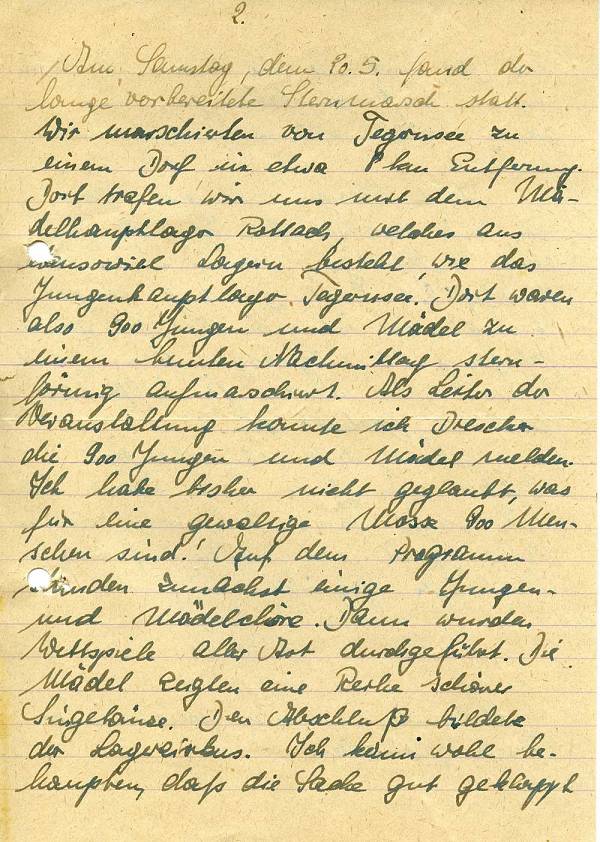 2.
Am Samstag, dem 20.5. fand der
lange vorbereitete Sternmarsch statt.
Wir marschierten von Tegernsee zu
einem Dorf in etwa 8 km Entfernung.
Dort trafen wir uns mit dem Mä-
delhauptlager Rottach, welches aus
ebensoviel Lagern besteht, wie das
Jungenhauptlager Tegernsee. Dort waren
also 900 Jungen und Mädel zu
einem bunten Nachmittag stern-
förmig aufmarschiert. Als Leiter der
Veranstaltung konnte ich Drescher
die 900 Jungen und Mädel melden.
Ich habe bisher nicht geglaubt, was
für eine gewaltige Masse 900 Men-
schen sind! Auf dem Programm
standen zunächst einige Jungen-
und Mädelchöre. Dann wurden
Wettspiele aller Art durchgeführt. Die
Mädel zeigten eine Reihe schöner
Singetänze. Den Abschluß bildete
der Lagerzirkus. Ich kann wohl be-
haupten, daß die Sache gut geklappt